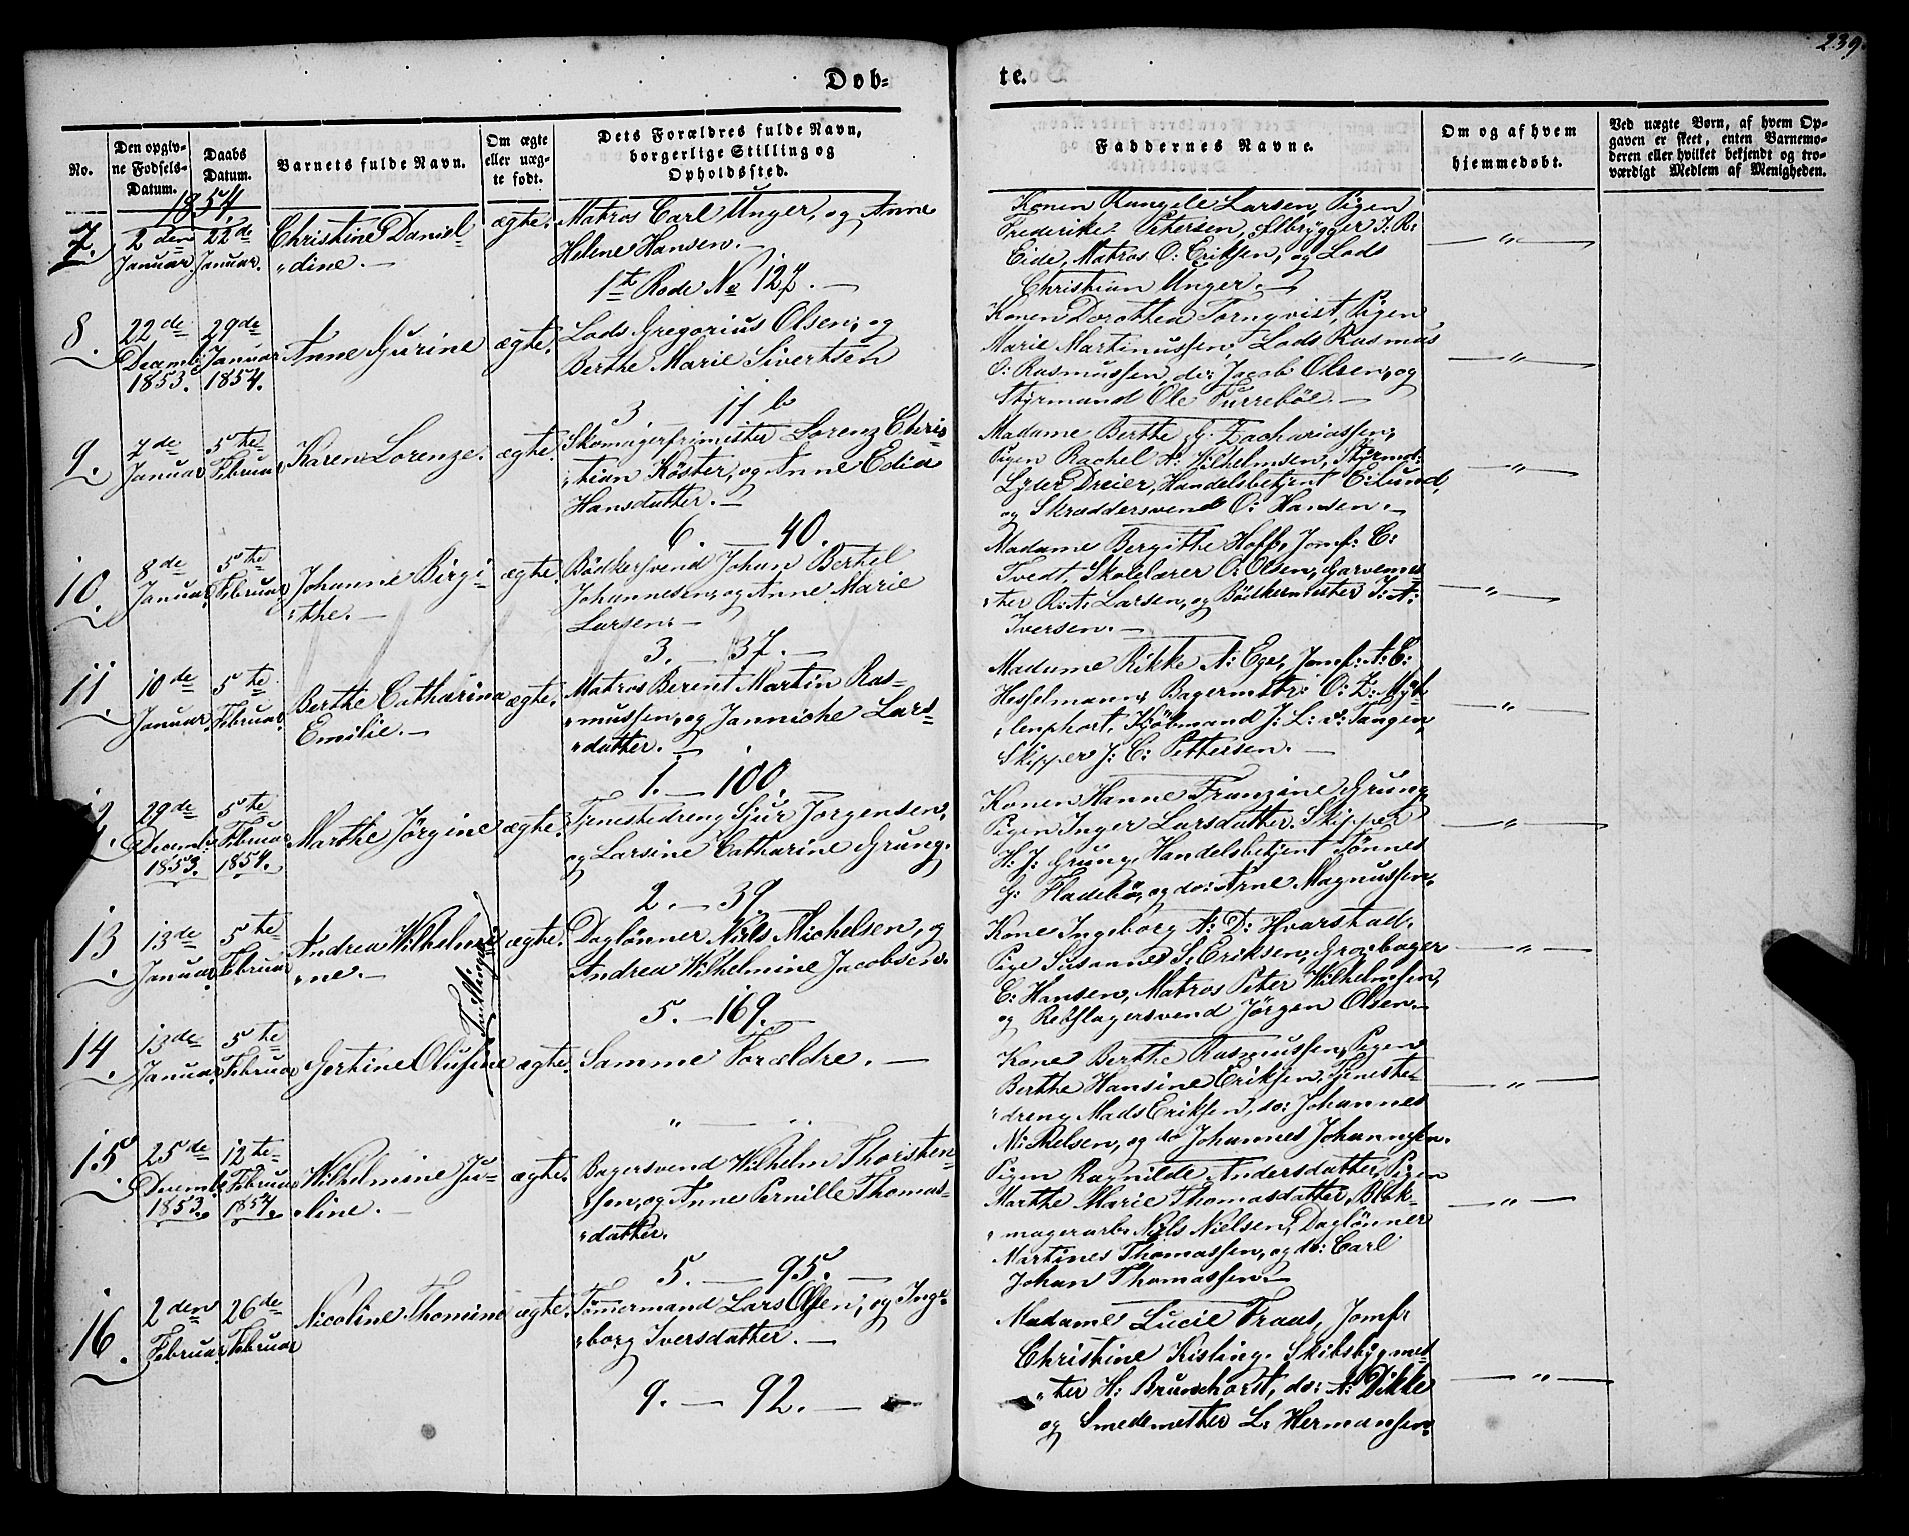 239.
Døb-
te.
No.
Den opgiv-
ne Fødsels-
Datum.
Daabs
Datum.
Barnets fulde Navn.
Om ægte
eller uæg-
te født.
Dets Forældres fulde Navn,
borgerlige Stilling og
Opholdssted.
Faddernes Navne.
Om og af hvem
hjemmedøbt.
Ved uægte Børn, af hvem Op-
gaven er skeet, enten Barnemo-
deren eller hvilket bekjendt og tro-
værdigt Medlem af Menigheden.
1854
7.
2den
Januar
22de
Januar.
Christine Daniel-
dine.
ægte.
Matros Carl Unger, og Anne
Helene Hansen.
1te Rode No 127.
Konen Larsen, Pigen
Frederike Petersen, Ølbrygger J. R:
Eide, Matros O: Eriksen, og Lods
Christian Unger.
"
8.
22de
Decemb:
1853.
29de
Januar
1854.
Anne Gurine
ægte.
Lods Gregorius Olsen, og
Berthe Marie Sivertsen
3. 11 b
Konen Dorothea Tornqvist, Pigen
Marie Martinussen, Lods Rasmus
O: Rasmussen, do: Jacob Olsen, og
Styrmand Ole Furrebøe.
"
9.
7de
Januar
5te
Februar
Karen Lorenze.
ægte.
Skomagerfrimester Lorenz Chris-
tian Köster, og Anne Edia
Hansdatter.
6. 40.
Madame Berthe G. Zachariassen,
Pigen Rachel A: Wilhelmsen, Styrmd:
Lyder Dreier, Handelsbetjent Eilund,
og Skræddersvend O: Hansen.
"
10.
8de
Januar.
5te
Februar
Johanne Birgi-
the.
ægte.
Bödkersvend Johan Bertel
Johannesen, og Anne Marie
Larsen.
3. 37.
Madame Bergithe Hoff, Jomf: C:
Tvedt, Skolelærer O: Olsen, Garvemes-
ter R: A: Larsen, og Bödkermester J: A:
Iversen.
"
11.
10de
Januar
5te
Februar.
Berthe Catharina
Emilie.
ægte.
Matros Berent Martin Ras-
mussen, og Jannicke Lars-
datter.
1. 100.
Madame Rikke A: Eger, Jomf: A: C:
Hesselmann, Bagermstr: O: Z: Myl-
lenphort, Kjöbmand J: L: v: Tangen,
Skipper J: C: Pettersen.
"
29de
Decemb:
1853.
5te
Februar
1854.
Marthe Jörgine
ægte.
Tjenestedreng Sjur Jorgensen,
og Larsine Catharine Grung.
2. 39.
Konen Hanne Franzine Grung,
Pigen Inger Larsdatter, Skipper
H: J: Grung, Handelsbetjent Tönnes
G: Fladebö, og do: Arne Magnussen.
"
13.
13de
Januar.
5te
Februar
Andrea Wilhelmi-
ne.
ægte.
Daglönner Niels Michelsen, og
Andrea Wilhelmine Jacobsen.
5. 169.
Kone Ingeborg A: D: Hvarstad,
Pige Susanne S. Eriksen, Grovbager
C: Hansen, Matros Peter Wilhelmsen,
og Rebslagersvend Jörgen Olsen.
"
Tvillinger
14.
13de
Januar.
5te
Februar
Gortine Olufine
ægte.
Samme Forældre.
" "
Kone Berthe Rasmussen, Pigen
Berthe Hansine Eriksen, Tjeneste-
dreng Mads Eriksen, do: Johannes
Mikkelsen, og do Johannes Johannesen.
"
15.
25de
Decemb:
1853.
12te
Februar
1854.
Wilhelmine Ju-
line.
ægte.
Bagersvend Wilhelm Thorsten-
sen, og Anne Pernille Thomas-
datter.
5. 95.
Pigen Ragnilde Andersdatter, Pigen
Marthe Marie Thomasdatter, Blok-
magerarb: Niels Nielsen, Daglönner
Martines Thomassen, og do: Carl
Johan Thomassen.
"
16.
2den
Februar.
26de
Februar
Nicoline Thomine
ægte.
Tömermand Lars Olsen, og Inge-
borg Iversdatter.
9. 92.
Madame Lucie Traas, Jomfr
Christine Kisling, Skibsbygmes-
ter H: Brunchorst, do: A: Dekke
og Smedemester L: Hermansen.
"